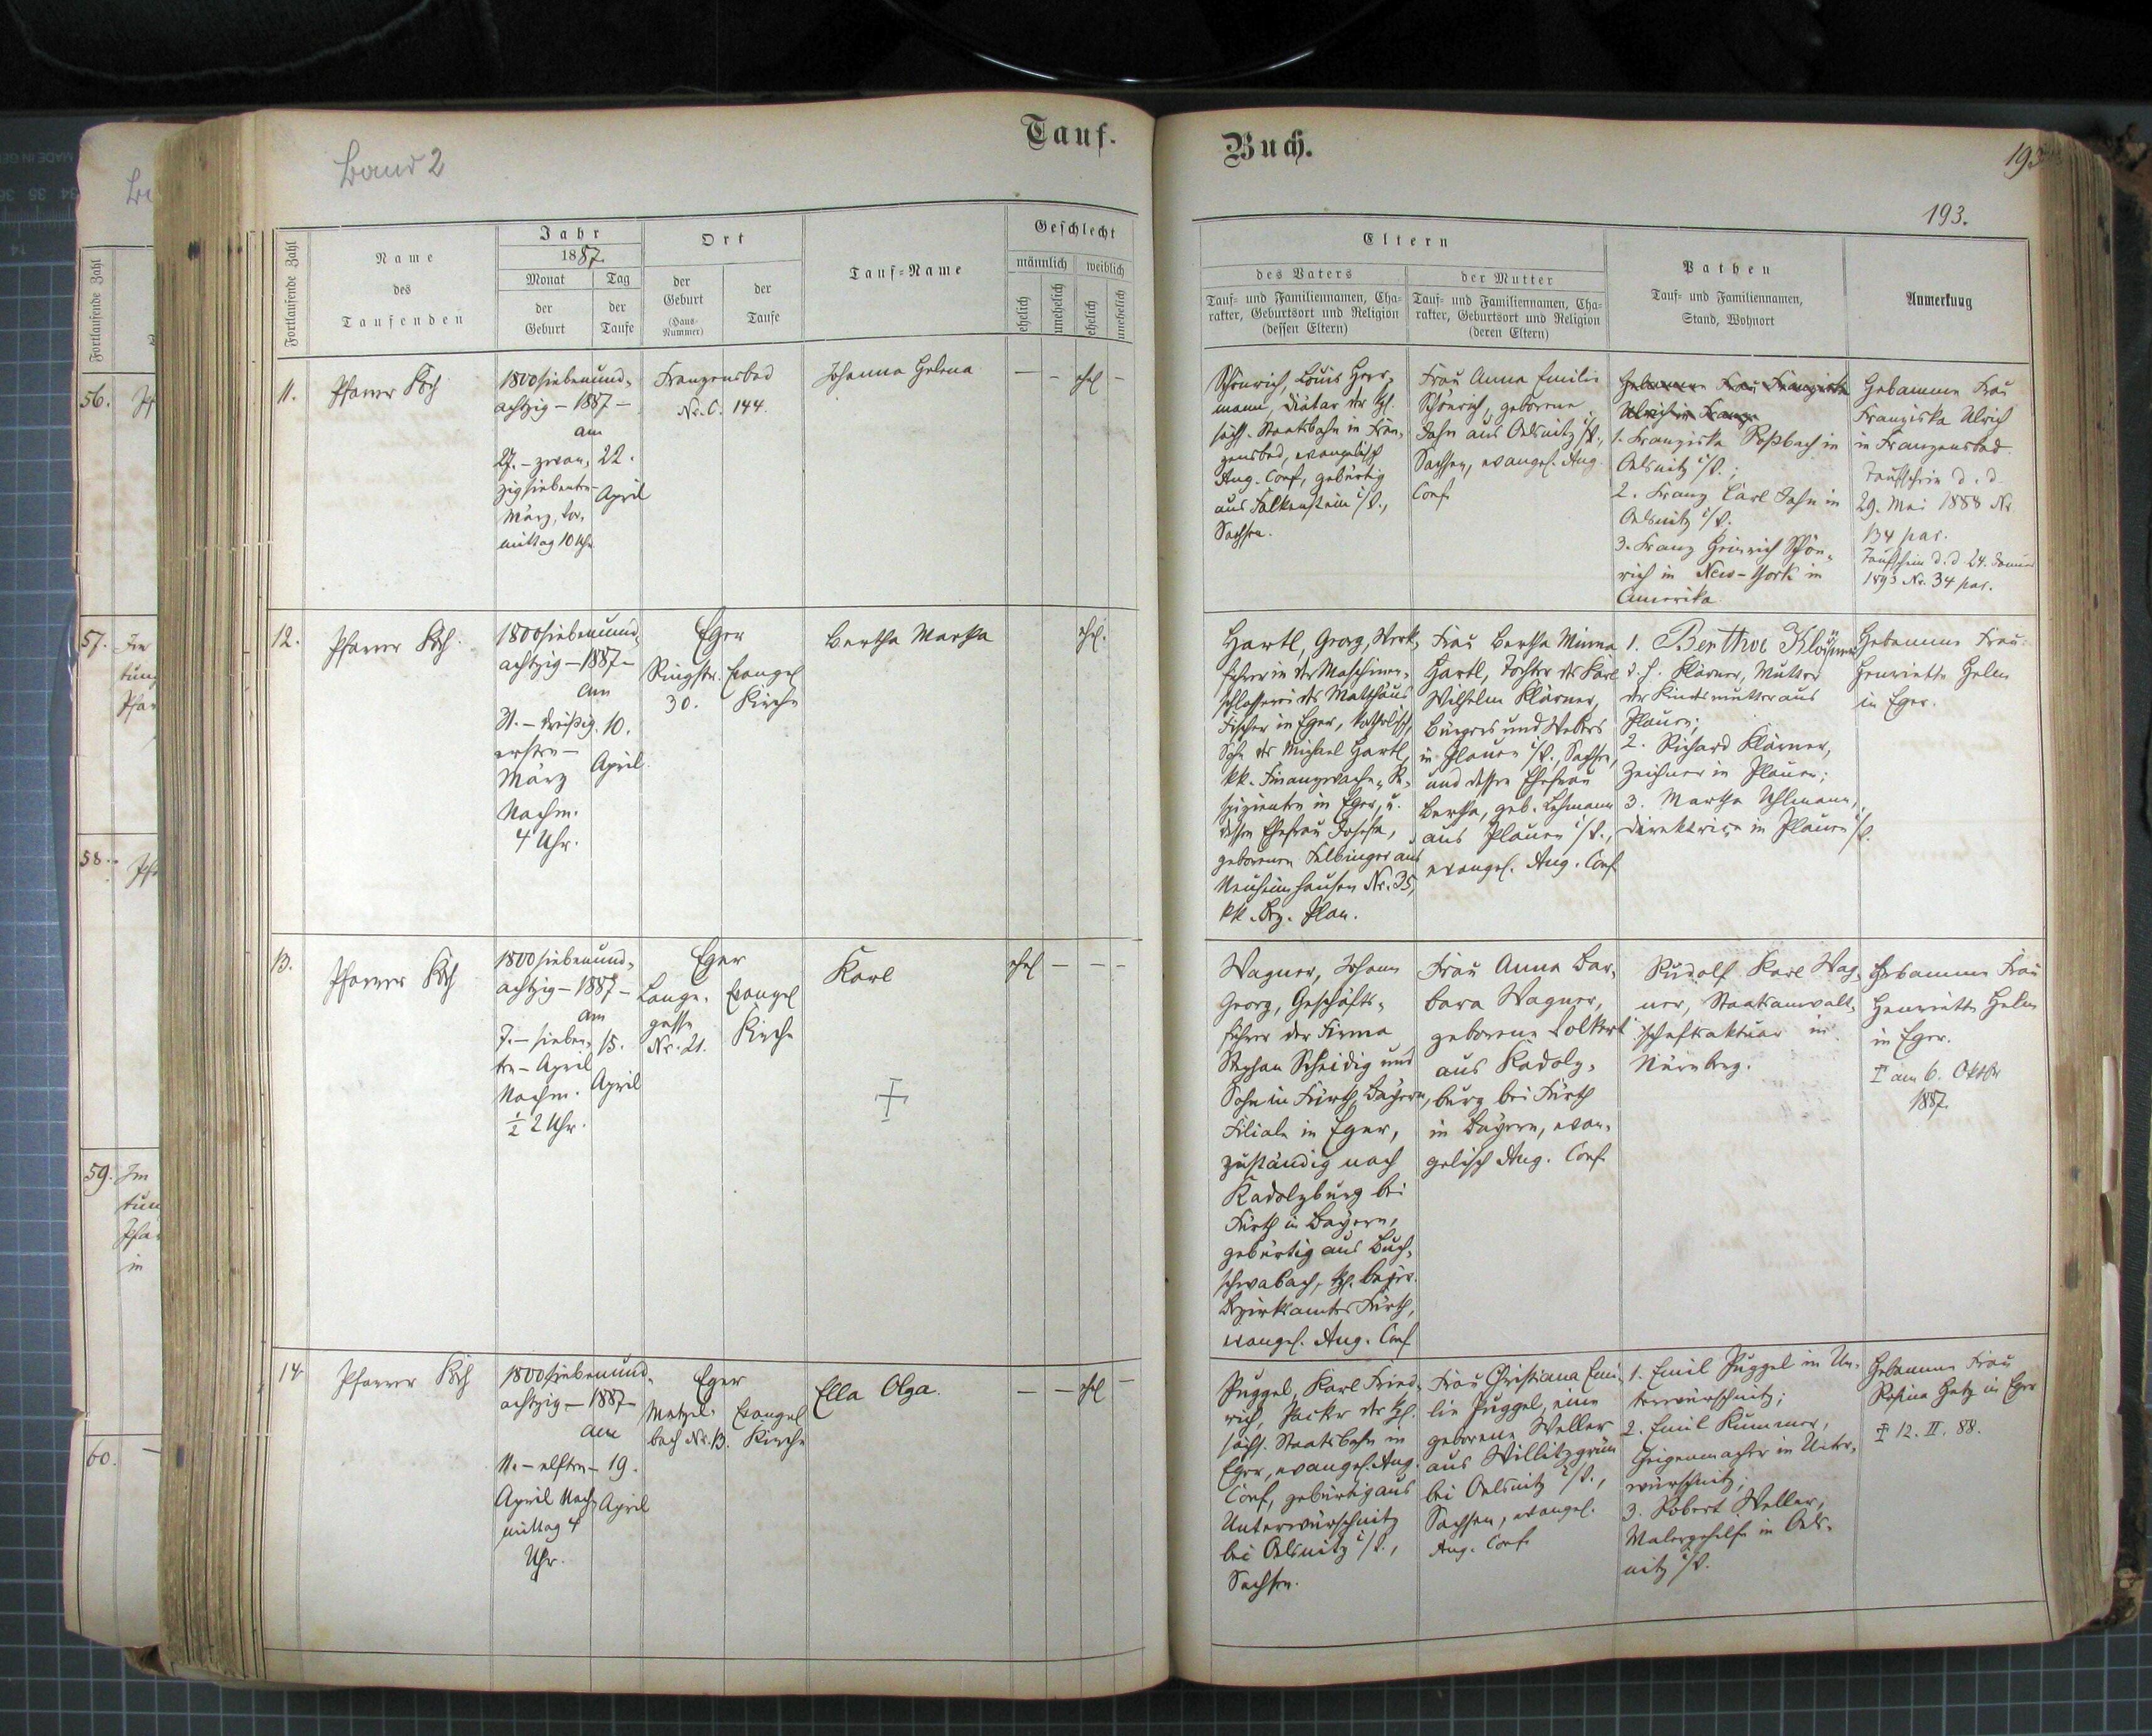 Tauf-
Buch.
Band 2
193
193.
Fortlaufende Zahl
Name
des
Taufenden
Jahr
1887.
Monat
der
Geburt
Tag
der
Taufe
Ort
der
Geburt
(Haus-
Nummer)
der
Taufe
Tauf-Name
Geschlecht
männlich
weiblich
ehelich
unehelich
ehelich
unehelich
Eltern
des Vaters
Tauf- und Familiennamen, Cha-
rakter, Geburtsort und Religion
(dessen Eltern)
der Mutter
Tauf- und Familiennamen, Cha-
rakter, Geburtsort und Religion
(deren Eltern)
Pathen
Tauf- und Familiennamen,
Stand, Wohnort
Anmerkung
11.
Pfarrer Koch
1800siebenund-
achtzig – 1887 –
am
27. – zwan-
zigsiebenten –
März, Vor-
mittag 10 Uhr
22.
April
Franzensbad
Nr. C. 144.
Johanna Helena
— – ehel –
Schönrich, Louis Herr-
mann, Diätar der kgl.
sächs. Staatsbahn in Fran-
zensbad, evangelisch
Aug. Conf., gebürtig
aus Falkenstein i/V.,
Sachsen.
Frau Anna Emilie
Schönrich, geborene
Jahn aus Oelsnitz i/V.,
Sachsen, evangel. Aug.
Conf.
Hebamme Frau Franziska
Ulrich in Franz-
1. Franziska Roßbach in
Oelsnitz i/V.;
2. Franz Carl Jahn in
Oelsnitz i/V.
3. Franz Heinrich Schön-
rich in New-York in
Amerika
Hebamme Frau
Franziska Ulrich
in Franzensbad.
Taufschein d. d.
29. Mai 1888 Nr
134 par.
Taufschein d. d. 24. Januar
1893 Nr. 34 par.
12.
Pfarrer Koch.
1800siebenund-
achtzig – 1887 –
am
31. – dreißig-
ersten –
März
Nachm.
4 Uhr.
10.
April
Eger
Ringstr.
30.
Evangel
Kirche
Bertha Martha
ehel.
Hartl, Georg, Werk-
führer in der Maschinen-
schlosserei des Matthäus
Fischer in Eger, katholisch,
Sohn des Michael Hartl,
kk. Finanzwache-R-
spizienten in Eger, u.
dessen Ehefrau Josefa,
geborenen Felbinger aus
Neuheimhausen Nr. 35,
kk. Bez. Plan.
Frau Bertha Minna
Hartl, Tochter des Karl
Wilhelm Klärner,
Bürgers und Webers
in Plauen i/V., Sachsen,
und dessen Ehefrau
Bertha, geb. Lehmann
aus Plauen i/V.,
evangel. Aug. Conf.
1. Berthe Klärner
d. h. Klärner, Mutter
der Kindsmutter aus
Plauen;
2. Richard Klärner,
Zeichner in Plauen;
3. Martha Uhlmann,
Direktrice in Plauen i/V.
Hebamme Frau
Henriette Helm
in Eger.
13.
Pfarrer Koch
1800siebenund-
achtzig – 1887 –
am
7. – sieben-
ten – April
Nachm.
½ 2 Uhr.
15.
April
Eger
Lange-
gasse
Nr. 21.
Evangel
Kirche
Karl
ehel — – –
Wagner, Johann
Georg, Geschäfts-
führer der Firma
Stephan Scheidig und
Sohn in Fürth, Bayern,
Filiale in Eger,
zuständig nach
Kadolzburg bei
Fürth in Bayern,
gebürtig aus Buch-
schwabach, kgl. bayr.
Bezirksamtes Fürth,
evangel. Aug. Conf
Frau Anna Bar-
bara Wagner,
geborene Volkert
aus Kadolz-
burg bei Fürth
in Bayern, evan-
gelisch Aug. Conf.
Rudolf Karl Wag-
ner, Staatsanwalt-
schaftsaktuar in
Nürnberg.
Hebamme Frau
Henriette Helm
in Eger.
† am 6. Oktbr
1887.
14.
Pfarrer Koch
1800siebenund-
achtzig – 1887 –
am
11. – elften –
April Nach-
mittag 4
Uhr.
19.
April
Eger
Metzel-
bach Nr. 13.
Evangel
Kirche
Ella Olga.
— — ehel –
Puggel, Karl Fried-
rich, Packer der kgl.
sächs. Staatsbahn in
Eger, evangel. Aug.
Conf, gebürtig aus
Unterwürschnitz
bei Oelsnitz i/V.,
Sachsen.
Frau Christiana Emi-
lie Puggel, eine
geborene Weller
aus Willitzgrün
bei Oelsnitz i/V.,
Sachsen, evangel.
Aug. Conf.
1. Emil Puggel in Un-
terwürschnitz;
2. Emil Kummer,
Geigenmacher in Unter-
würschnitz;
3. Robert Weller,
Malergehilfe in Oels-
nitz i/V.
Hebamme Frau
Rosina Hetz in Eger
† 12. II. 88.
Fortlaufende Zahl
56.
57.
58.
59.
60.